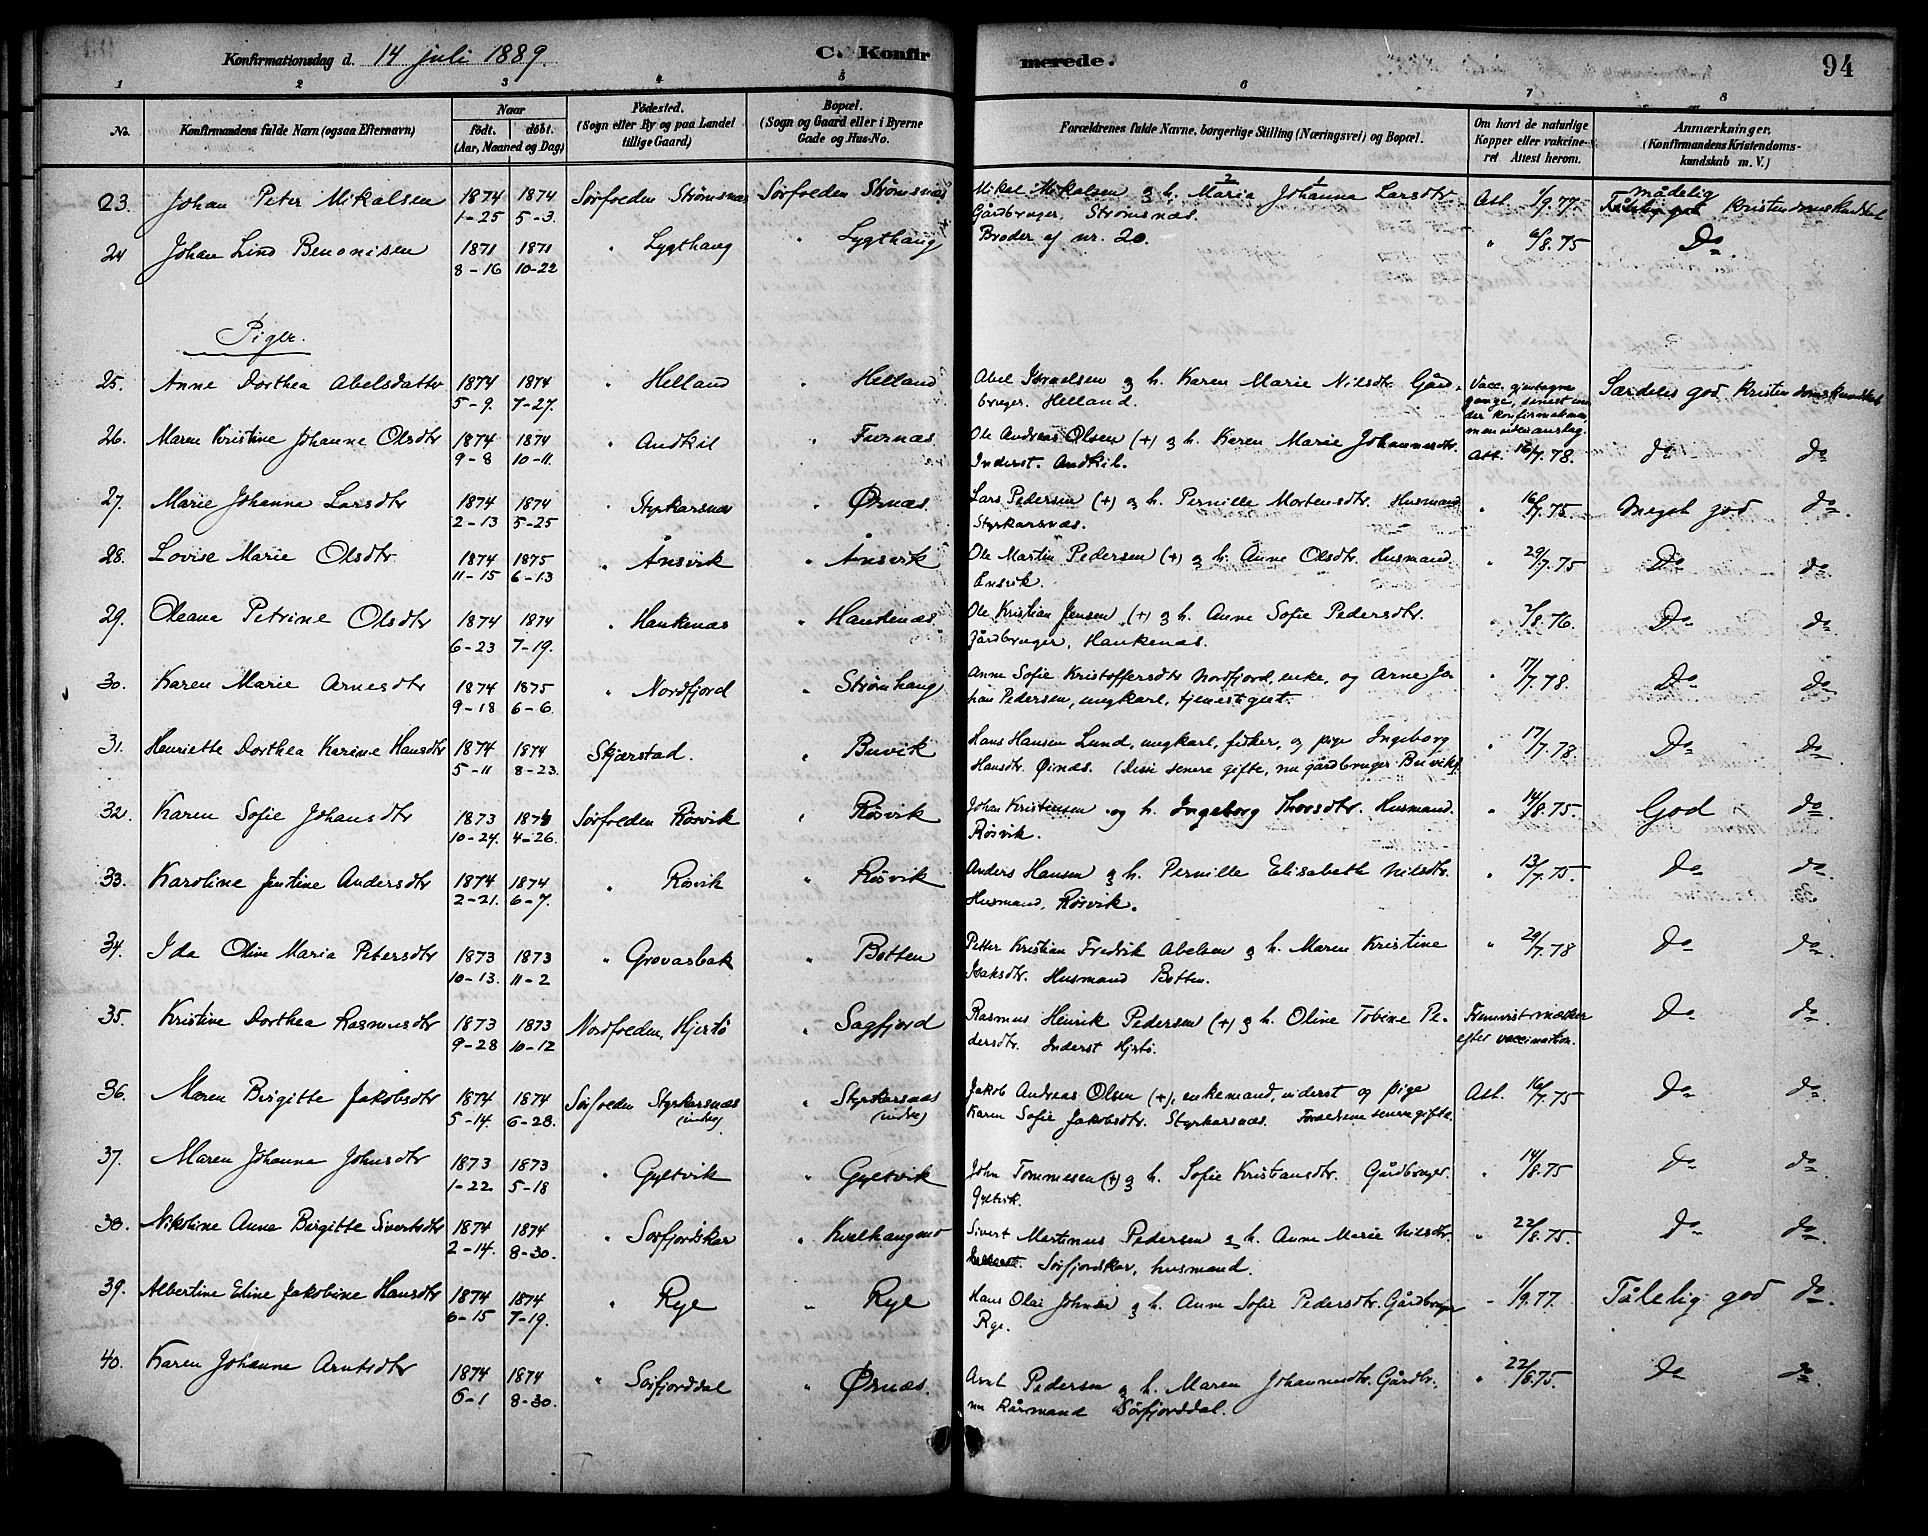 Konfirmationsdag d. 14 juli 1889. C. Konfir merede. 94
1 2 3 4 5 6 7 8
No. Konfirmandens fulde Navn (ogsaa Efternavn) Naar født. døbt. (Aar, Maaned og Dag) Fødested. (Sogn eller By og paa Landet tillige Gaard) Bopæl. (Sogn og Gaard eller i Byerne Gade og Hus-No. Forældrenes fulde Navne, borgerlige Stilling (Næringsvei) og Bopæl. Om havt de naturlige Kopper eller vakcineret Attest herom. Anmærkninger, (Konfirmandens Kristendomskundskab m. V.)
23. Johan Peter Mikalsen 1874 1-25 1874 5-3. Sørfolden Strømsnæs Sørfolden Strømsnæs Mikal Mikalsen & h. Maria Johanna Larsdtr. Gårdbruger, Strømsnæs. Att. 1/9.77. mådelig Kristendomskundskab
24 Johan Lind Benonisen 1871 8-16 1871 10-22 " Lygthaug " Lygthaug Broder af nr. 20. " 6/8.75 Do
Piger.
25. Anne Dorthea Abelsdatter 1874 5-9. 1874 7-27. " Helland " Helland Abel Israelsen & h. Karen Marie Nilsdtr. Gårdbruger. Helland. Vacc. gjentagne gange, senest under konfirmationen, men uden anslag. Særdeles god Kristendomskundskab
26. Maren Kristine Johanne Olsdtr 1874 9-8 1874 10-11. " Andkil " Furnæs Ole Andreas Olsen (+) & h. Karen Marie Johannesdtr. Inderst. Andkil. Att. 16/7.78. do do
27. Marie Johanna Larsdtr 1874 2-13 1874 5-25 " Styrkarsnæs " Ørnæs. Lars Pedersen (+) & h. Pernille Mortensdtr. Husmand Styrkarsnæs. " 16/7.75 Meget god do
28. Lovise Marie Olsdtr. 1874 11-15 1875 6-13 " Ånsvik " Ånsvik Ole Martin Pedersen (+) & h. Anne Olsdtr. Husmand. Ånsvik. " 29/7.75 Do do
29. Oleane Petrine Olsdtr 1874 6-23 1874 7-19. " Hankenæs " Hankenæs. Ole Kristian Jensen (+) & h. Anne Sofie Pedersdtr. Gårdbruger, Hankenæs. " 2/8.76. Do do
30. Karen Marie Arnesdtr 1874 9-18 1875 6-6. " Nordfjord " Strømhaug Anne Sofie Kristoffersdtr Nordfjord, enke, og Arne Johan Pedersen, ungkarl, tjenestegut. " 17/7.78. Do do
31. Henriette Dorthea Karine Hansdtr 1874 5-11 1874 8-23. Skjærstad. " Buvik Hans Hansen Lund, ungkarl, fisker, og pige Ingeborg Hansdtr. Øinæs. (Disse senere gifte, nu gårdbruger Buvik) " 17/7.78 Do do
32. Karen Sofie Johansdtr 1873 10-24. 1874 4-26. Sørfolden Røsvik " Røsvik Johan Kristensen og h. Ingeborg Thorsdtr. Husmand. Røsvik. " 14/8.75. God do
33. Karoline Justine Andersdtr 1874 2-21. 1874 6-7. " Røsvik " Røsvik Anders Hansen & h. Pernille Elisabeth Nilsdtr. Husmand, Røsvik. " 13/7.75. Do do.
34. Ida Oline Maria Petersdtr 1873 10-13. 1873 11-2 " Grovasbak " Botten Petter Kristian Fredrik Abelsen & h. Maren Kristine Isaksdtr. Husmand Botten. " 29/7.78 Do do.
35. Kristine Dorthea Rasmusdtr 1873 9-28 1873 10-12 Nordfolden, Hjertø " Sagfjord Rasmus Henrik Pedersen (+) & h. Oline Tobine Pedersdtr. Inderst Hjertø. Fremvist mærker efter vaccination. Do do.
36. Maren Birgitte Jakobsdtr 1874 5-14. 1874 6-28. Sørfolden Styrkarsnæs (indre) " Styrkarsnæs (indre) Jakob Andreas Olsen (+), enkemand, inderst og pige Karen Sofie Jakobsdtr. Styrkarsnæs. Forældrene senere gifte. Att. 16/7.75 Do do.
37. Maren Johanna Johnsdtr 1873 1-22 1873 5-18 " Gyltvik " Gyltvik John Tommesen (+) & h. Sofie Kristiansdtr. Gårdbruger. Gyltvik. " 14/8.75 Do do
38. Nikoline Anna Birgitte Sivertsdtr 1874 2-14. 1874 8-30. " Sørfjordskar " Kvelhaugmo Sivert Martinus Pedersen & h. Anne Marie Nilsdtr. Sørfjordskar, husmand. " 22/8.75. Do do.
39. Albertine Eline Jakobine Hansdtr 1874 6-15 1874 7-19. " Rye " Rye Hans Olai Johnsen & h. Anne Sofie Pedersdtr. Gårdbruger Rye. " 1/9.77. Tålelig god do.
40. Karen Johanne Arntsdtr 1874 6-1 1874 8-30. " Sørfjorddal " Ørnæs. Arnt Pedersen & h. Maren Johannesdtr. Gårdbr. nu kårmand Sørfjorddal. " 22/8.75. Do do